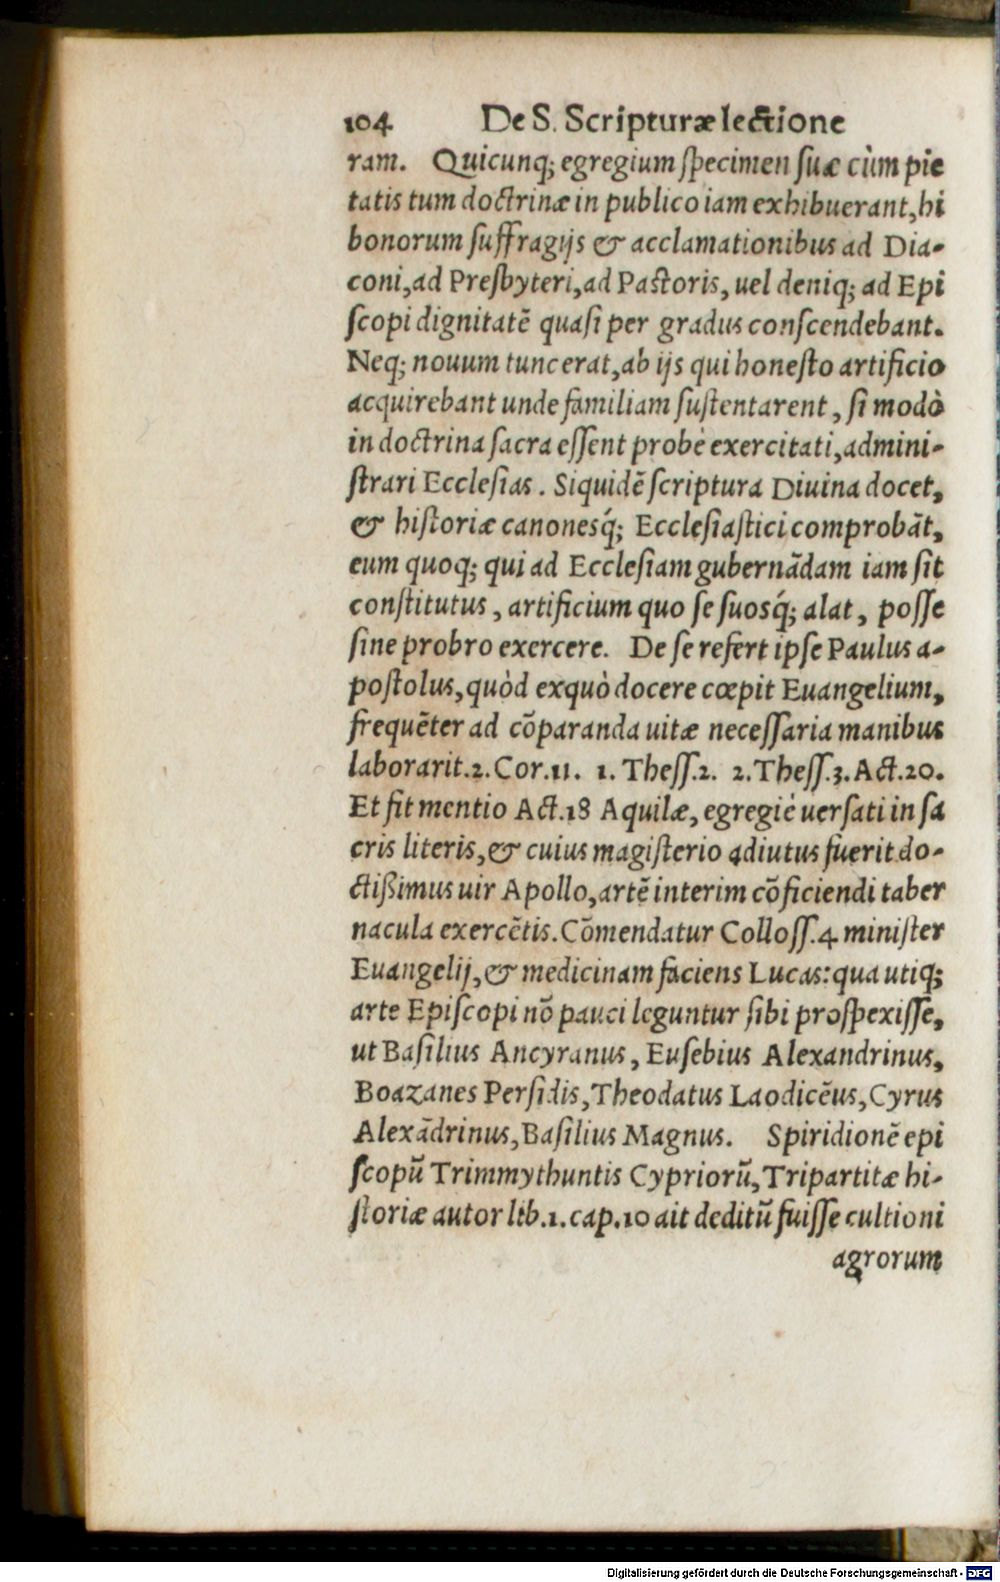 104 De S. Scripturæ lectione
ram. Quicunq; egregium ſpecimen ſuæ cùm pie
tatis tum doctrinæ in publico iam exhibuerant, hi
bonorum ſuffragijs & acclamationibus ad Dia-
coni, ad Preſbyteri, ad Paſtoris, uel deniq; ad Epi
ſcopi dignitatē quaſi per gradus conſcendebant.
Neq; nouum tunc erat, ab ijs qui honeſto artificio
acquirebant unde familiam ſuſtentarent, ſi modò
in doctrina ſacra eſſent probè exercitati, admini-
ſtrari Eccleſias. Siquidē ſcriptura Diuina docet,
& hiſtoriæ canonesq́; Eccleſiaſtici comprobāt,
eum quoq; qui ad Eccleſiam gubernādam iam ſit
conſtitutus, artificium quo ſe ſuosq́; alat, poſſe
ſine probro exercere. De ſe refert ipſe Paulus a-
poſtolus, quòd ex quò docere cœpit Euangelium,
frequēter ad cōparanda uitæ neceſſaria manibus
laborarit. 2. Cor. 11. 1. Theſſ. 2. 2. Theſſ. 3. Act. 20.
Et fit mentio Act. 18 Aquilæ, egregiè uerſati in ſa
cris literis, & cuius magiſterio adiutus fuerit do-
ctißimus uir Apollo, artē interim cōficiendi taber
nacula exercētis. Cōmendatur Colloſſ. 4 miniſter
Euangelij, & medicinam faciens Lucas: qua utiq;
arte Epiſcopi nō pauci leguntur ſibi proſpexiſſe,
ut Baſilius Ancyranus, Euſebius Alexandrinus,
Boazanes Perſidis, Theodatus Laodicēus, Cyrus
Alexādrinus, Baſilius Magnus. Spiridionē epi
ſcopū Trimmythuntis Cypriorū, Tripartitæ hi-
ſtoriæ autor lib. 1. cap. 10 ait deditū fuiſſe cultioni
agrorum
Digitalisierung gefördert durch die Deutsche Forschungsgemeinschaft - DFG